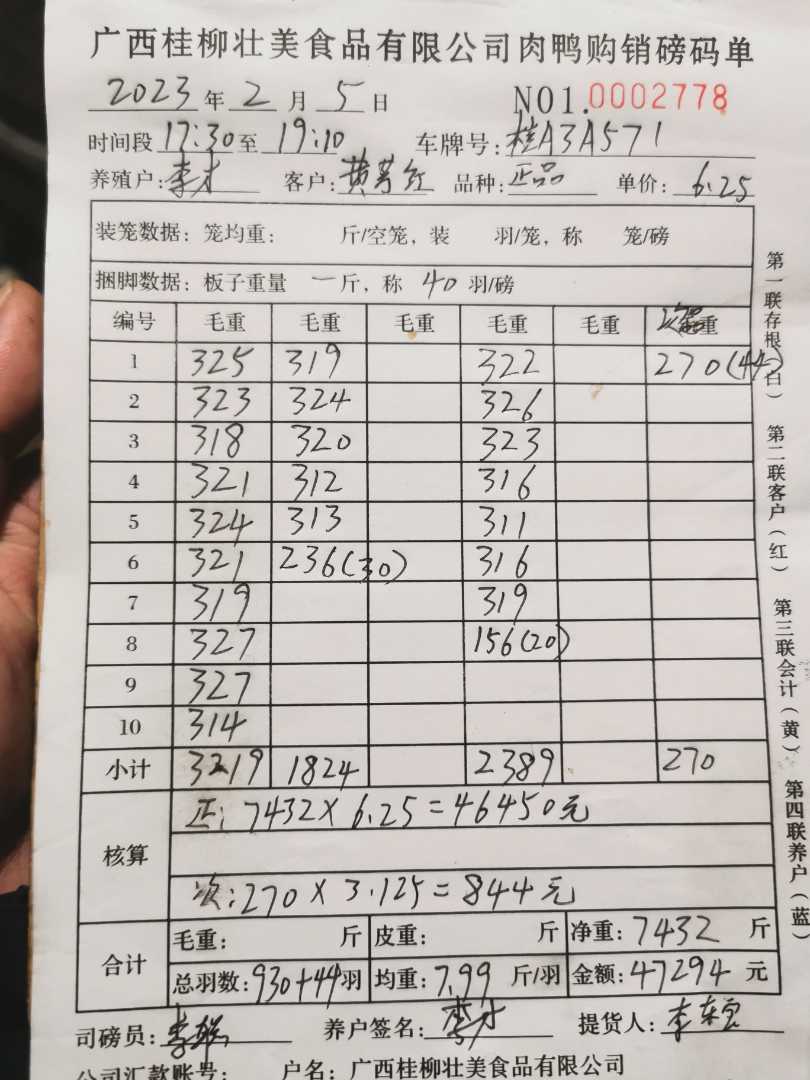 广西桂柳壮美食品有限公司肉鸭购销磅码单
2023 年 2 月 5 日 NO1.0002778
时间段 17:30 至 19:10 车牌号: 桂A3A571
养殖户: 李才 客户: 黄芳红 品种: 正品 单价: 6.25
装笼数据: 笼均重: 斤/空笼, 装 羽/笼, 称 笼/磅
捆脚数据: 板子重量 一 斤, 称 40 羽/磅
编号 毛重 毛重 毛重 毛重 毛重 毛重
1 325 319 322 270(44)
2 323 324 326
3 318 320 323
4 321 312 316
5 324 313 311
6 321 236(30) 316
7 319 319
8 327 156(20)
9 327
10 314
小计 3219 1824 2389 270
核算 正: 7432×6.25=46450元
次: 270×3.125=844元
合计 毛重: 斤 皮重: 斤 净重: 7432 斤
总羽数: 930+44 羽 均重: 7.99 斤/羽 金额: 47294 元
司磅员: 李 养户签名: 李才 提货人: 李
公司汇款账号: 户名: 广西桂柳壮美食品有限公司
第一联存根(白) 第二联客户(红) 第三联会计(黄) 第四联养户(蓝)